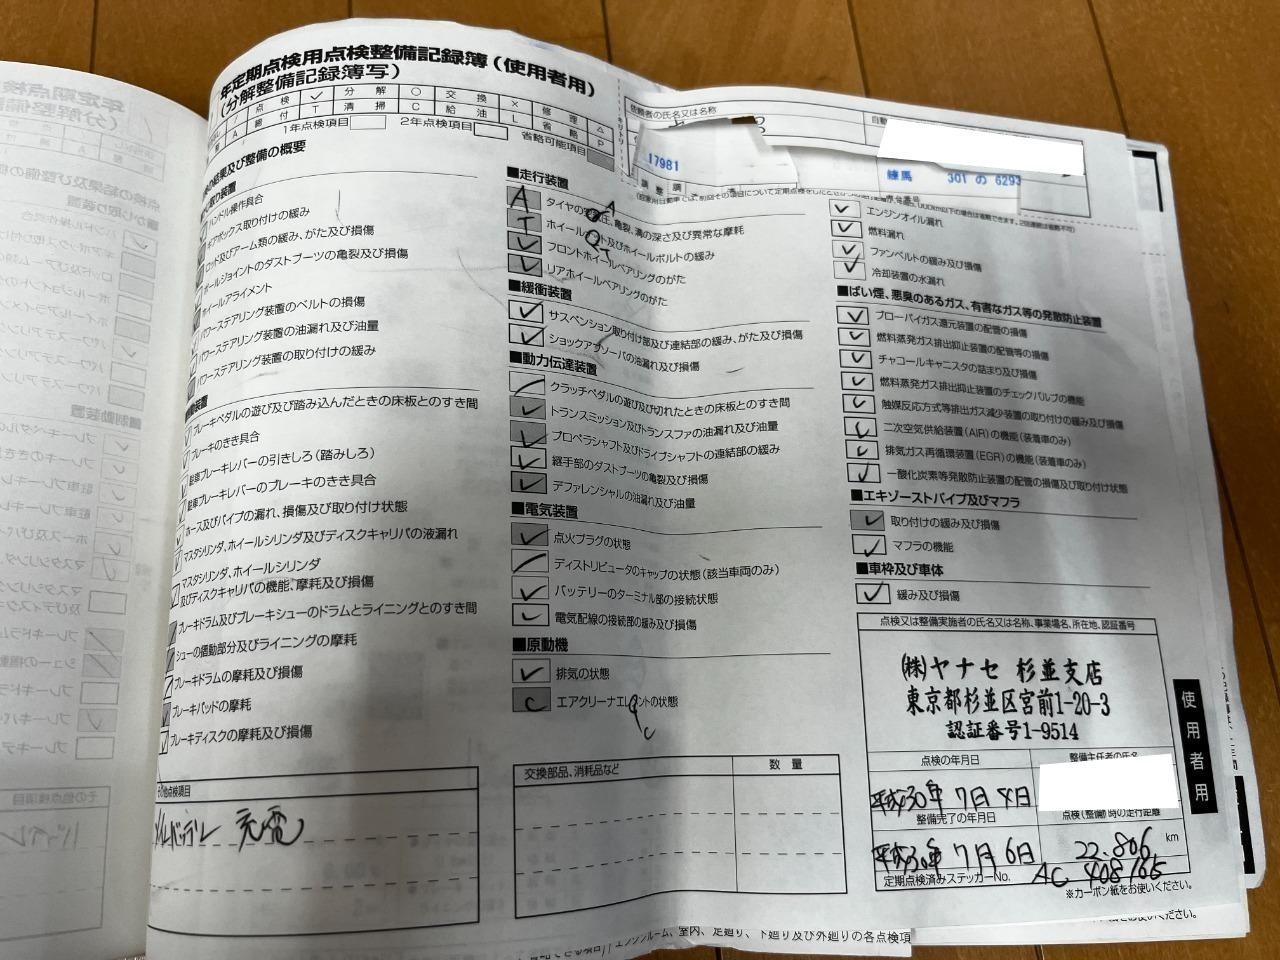 年定期点検用点検整備記録簿(使用者用)
(分解整備記録簿写)
点検 ✓ 分解 ○ 交換 × 修理 △
A 締付 T 清掃 C 給油 L 省略 P
1年点検項目 2年点検項目 省略可能項目
の結果及び整備の概要
ハンドル操作具合
ギアボックス取り付けの緩み
ロッド及びアーム類の緩み、がた及び損傷
ボールジョイントのダストブーツの亀裂及び損傷
ホイールアライメント
パワーステアリング装置のベルトの損傷
パワーステアリング装置の油漏れ及び油量
パワーステアリング装置の取り付けの緩み
制動装置
ブレーキペダルの遊び及び踏み込んだときの床板とのすき間
ブレーキのきき具合
駐車ブレーキレバーの引きしろ(踏みしろ)
駐車ブレーキレバーのブレーキのきき具合
ホース及びパイプの漏れ、損傷及び取り付け状態
マスタシリンダ、ホイールシリンダ及びディスクキャリパの液漏れ
マスタシリンダ、ホイールシリンダ
及びディスクキャリパの機能、摩耗及び損傷
ブレーキドラム及びブレーキシューのドラムとライニングとのすき間
シューの摺動部分及びライニングの摩耗
ブレーキドラムの摩耗及び損傷
ブレーキパッドの摩耗
ブレーキディスクの摩耗及び損傷
その他点検項目
充電
■走行装置
A タイヤの空気圧、亀裂、溝の深さ及び異常な摩耗
T ホイールナット及びホイールボルトの緩み
フロントホイールベアリングのがた
リアホイールベアリングのがた
■緩衝装置
サスペンション取り付け部及び連結部の緩み、がた及び損傷
ショックアブソーバの油漏れ及び損傷
■動力伝達装置
クラッチペダルの遊び及び切れたときの床板とのすき間
トランスミッション及びトランスファの油漏れ及び油量
プロペラシャフト及びドライブシャフトの連結部の緩み
継手部のダストブーツの亀裂及び損傷
デファレンシャルの油漏れ及び油量
■電気装置
点火プラグの状態
ディストリビュータのキャップの状態(該当車両のみ)
バッテリーのターミナル部の接続状態
電気配線の接続部の緩み及び損傷
■原動機
排気の状態
C エアクリーナエレメントの状態
交換部品、消耗品など 数量
依頼者の氏名又は名称
17981
練馬 301 の 6293
エンジンオイル漏れ
燃料漏れ
ファンベルトの緩み及び損傷
冷却装置の水漏れ
■ばい煙、悪臭のあるガス、有害なガス等の発散防止装置
ブローバイガス還元装置の配管の損傷
燃料蒸発ガス排出抑止装置の配管等の損傷
チャコールキャニスタの詰まり及び損傷
燃料蒸発ガス排出抑止装置のチェックバルブの機能
触媒反応方式等排出ガス減少装置の取り付けの緩み及び損傷
二次空気供給装置(AIR)の機能(装着車のみ)
排気ガス再循環装置(EGR)の機能(装着車のみ)
一酸化炭素等発散防止装置の配管の損傷及び取り付け状態
■エキゾーストパイプ及びマフラ
取り付けの緩み及び損傷
マフラの機能
■車枠及び車体
緩み及び損傷
点検又は整備実施者の氏名又は名称、事業場名、所在地、認証番号
(株)ヤナセ 杉並支店
東京都杉並区宮前1-20-3
認証番号1-9514
点検の年月日 整備主任者の氏名
平成30年7月4日
整備完了の年月日 点検(整備)時の走行距離
平成30年7月6日 22,806 km
定期点検済みステッカーNo. AC 408165
※カーボン紙をお使いください。
使用者用
エンジンルーム、室内、足廻り、下廻り及び外廻りの各点検項